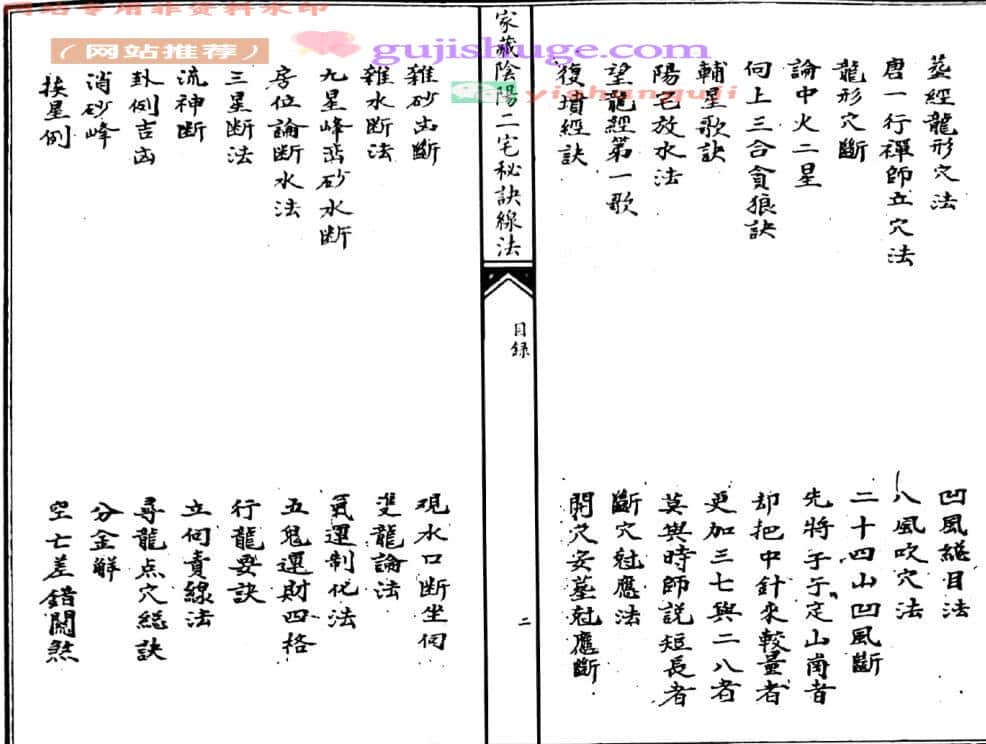 网站推荐
gujishuge.com
yishanguji
塟經龍形穴法
唐一行禪師立穴法
龍形穴斷
論中火二星
向上三合貪狼訣
輔星歌訣
陽宅放水法
望龍經第一歌
復墳經訣
凹風總目法
八風吹穴法
二十四山凹風斷
先將子午定山崗者
却把中針來較量者
更加三七與二八者
莫與時師説短長者
斷穴尅應法
開穴安墓尅應斷
家藏陰陽二宅秘訣線法
目録
二
雜砂凶斷
雜水断法
九星峰峦砂水断
房位論断水法
三星断法
流神断
卦例吉凶
消砂峰
挨星例
观水口断坐向
雙龍論法
氣運制化法
五鬼運財四格
行龍要訣
立向責線法
尋龍点穴總訣
分金解
空亡差錯關煞